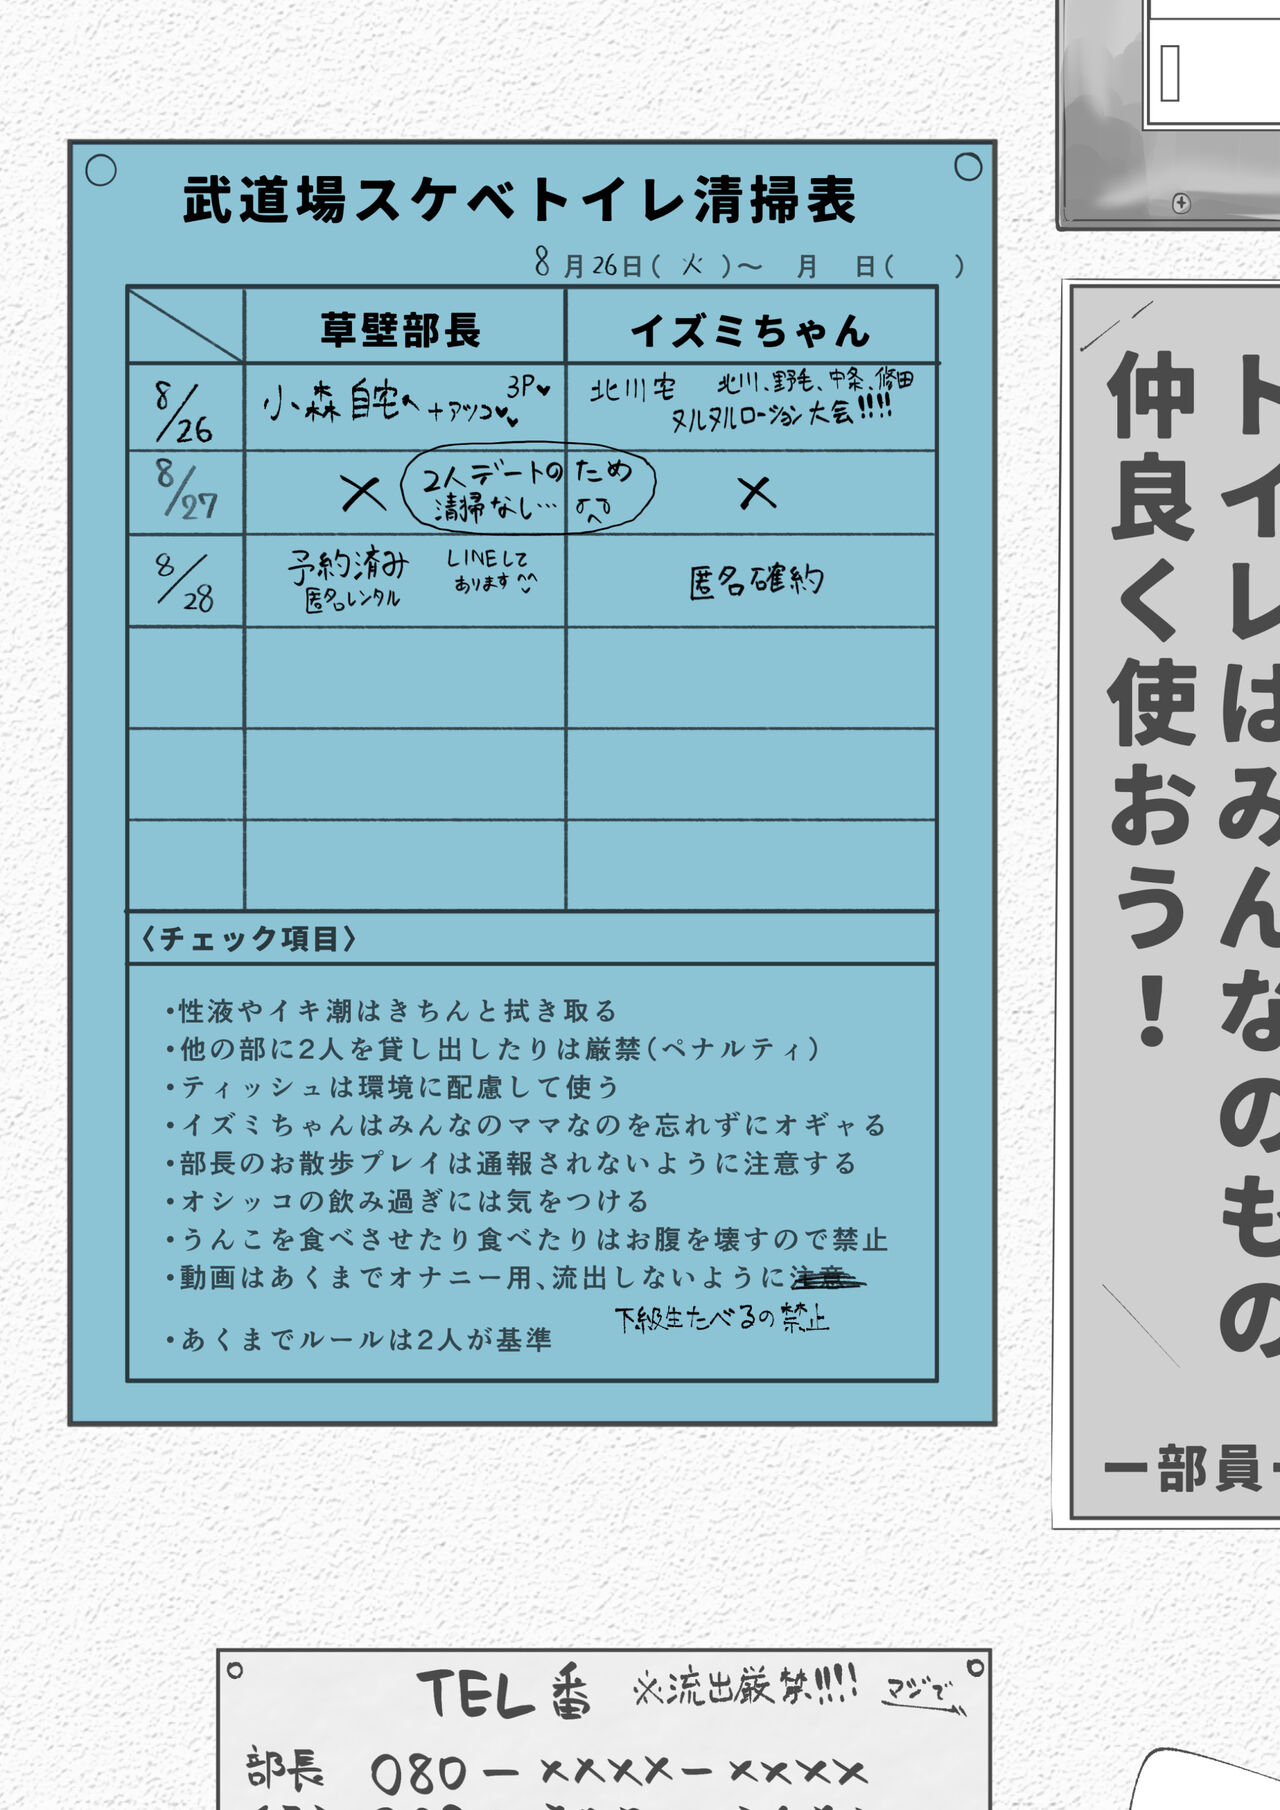 武道場スケベトイレ清掃表
8月26日(火)〜 月 日( )
草壁部長 イズミちゃん
8/26 小森自宅へ +アツコ♥ 3P♥ 北川宅 北川、野毛、中条、修田
ヌルヌルローション大会!!!!
8/27 × 2人デートのため ×
清掃なし…
8/28 予約済み LINEして 匿名確約
匿名レンタル あります^^
〈チェック項目〉
・性液やイキ潮はきちんと拭き取る
・他の部に2人を貸し出したりは厳禁(ペナルティ)
・ティッシュは環境に配慮して使う
・イズミちゃんはみんなのママなのを忘れずにオギャる
・部長のお散歩プレイは通報されないように注意する
・オシッコの飲み過ぎには気をつける
・うんこを食べさせたり食べたりはお腹を壊すので禁止
・動画はあくまでオナニー用、流出しないように注意
下級生たべるの禁止
・あくまでルールは2人が基準
トイレはみんなのもの
仲良く使おう！
ー部員
TEL番 ※流出厳禁!!!! マジで
部長 080－××××－××××